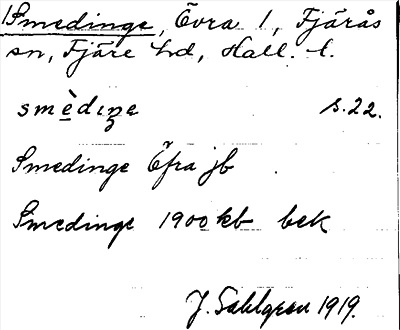 Smedinge, Övra 1, Fjärås
sn, Fjäre hd, Hall. l.
smèdinge s. 22.
Smedinge Öfra jb
Smedinge 1900 kb bek
J. Sahlgren 1919.